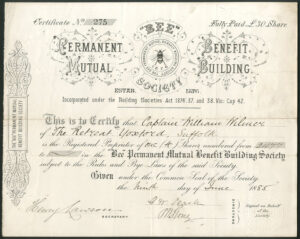 Certificate No 275
Fully Paid £30 Share.
"BEE"
PERMANENT BENEFIT
MUTUAL BUILDING
SOCIETY
ESTAB.
Incorporated under the Building Societies Act 1874, 37. and 38. Vic: Cap 42.
This is to Certify that Captain William Wilmer
of The Retreat Yoxford, Suffolk
is the Registered Proprietor of Shares numbered from
to in the Bee Permanent Mutual Benefit Building Society
subject to the Rules and Bye Laws of the said Society.
Given under the Common Seal of the Society
the Ninth day of June 1885
Henry
SECRETARY.
DIRECTORS
Signed on Behalf
of the
Society
THE BEE PERMANENT MUTUAL
BENEFIT BUILDING SOCIETY